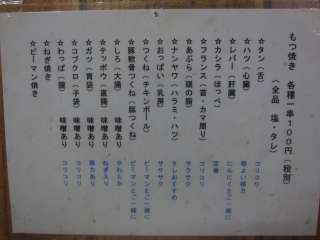 もつ焼き 各種一串100円(税別)
(全品 塩・タレ)
☆タン(舌) コリコリ
☆ハツ(心臓) 程よい弾力
☆レバー(肝臓) にんにくとご一緒に
☆カシラ(ほっぺ) 定番
☆フランス(首・カマ周り) コリコリ
☆あぶら(頭の脂) サクサク
☆ナンヤワ(ハラミ・ハツ) タレおすすめ
☆おっぱい(乳房) サクサク
☆つくね(チキンボール) ピーマンとご一緒に
☆豚軟骨つくね(豚つくね) ピーマンとご一緒に
☆しろ(大腸) 味噌あり やわらか
☆テッポウ(直腸) 味噌あり ねぎ入り
☆ガツ(胃袋) 味噌あり 弾力あり
☆コブクロ(子袋) 味噌あり コリコリ
☆わっぱ(腸) 味噌あり コリコリ
☆ねぎ焼き
☆ピーマン焼き